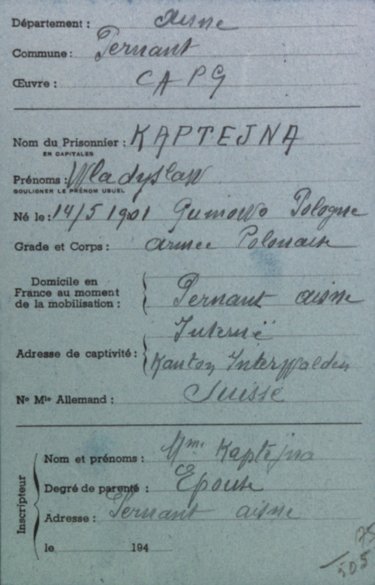 Département : aisne
Commune : Pernant
Œuvre : CAPG
Nom du Prisonnier : KAPTEJNA
EN CAPITALES
Prénoms : Wladyslaw
SOULIGNER LE PRÉNOM USUEL
Né le : 14/5 1901 Gumowo Pologne
Grade et Corps : armée Polonaise
Domicile en
France au moment
de la mobilisation : Pernant aisne
Interné
Adresse de captivité : Kanton Interwalden
No Mle Allemand : Suisse
Inscripteur
Nom et prénoms : Mme Kaptejna
Degré de parenté : Epouse
Adresse : Pernant aisne
le 194